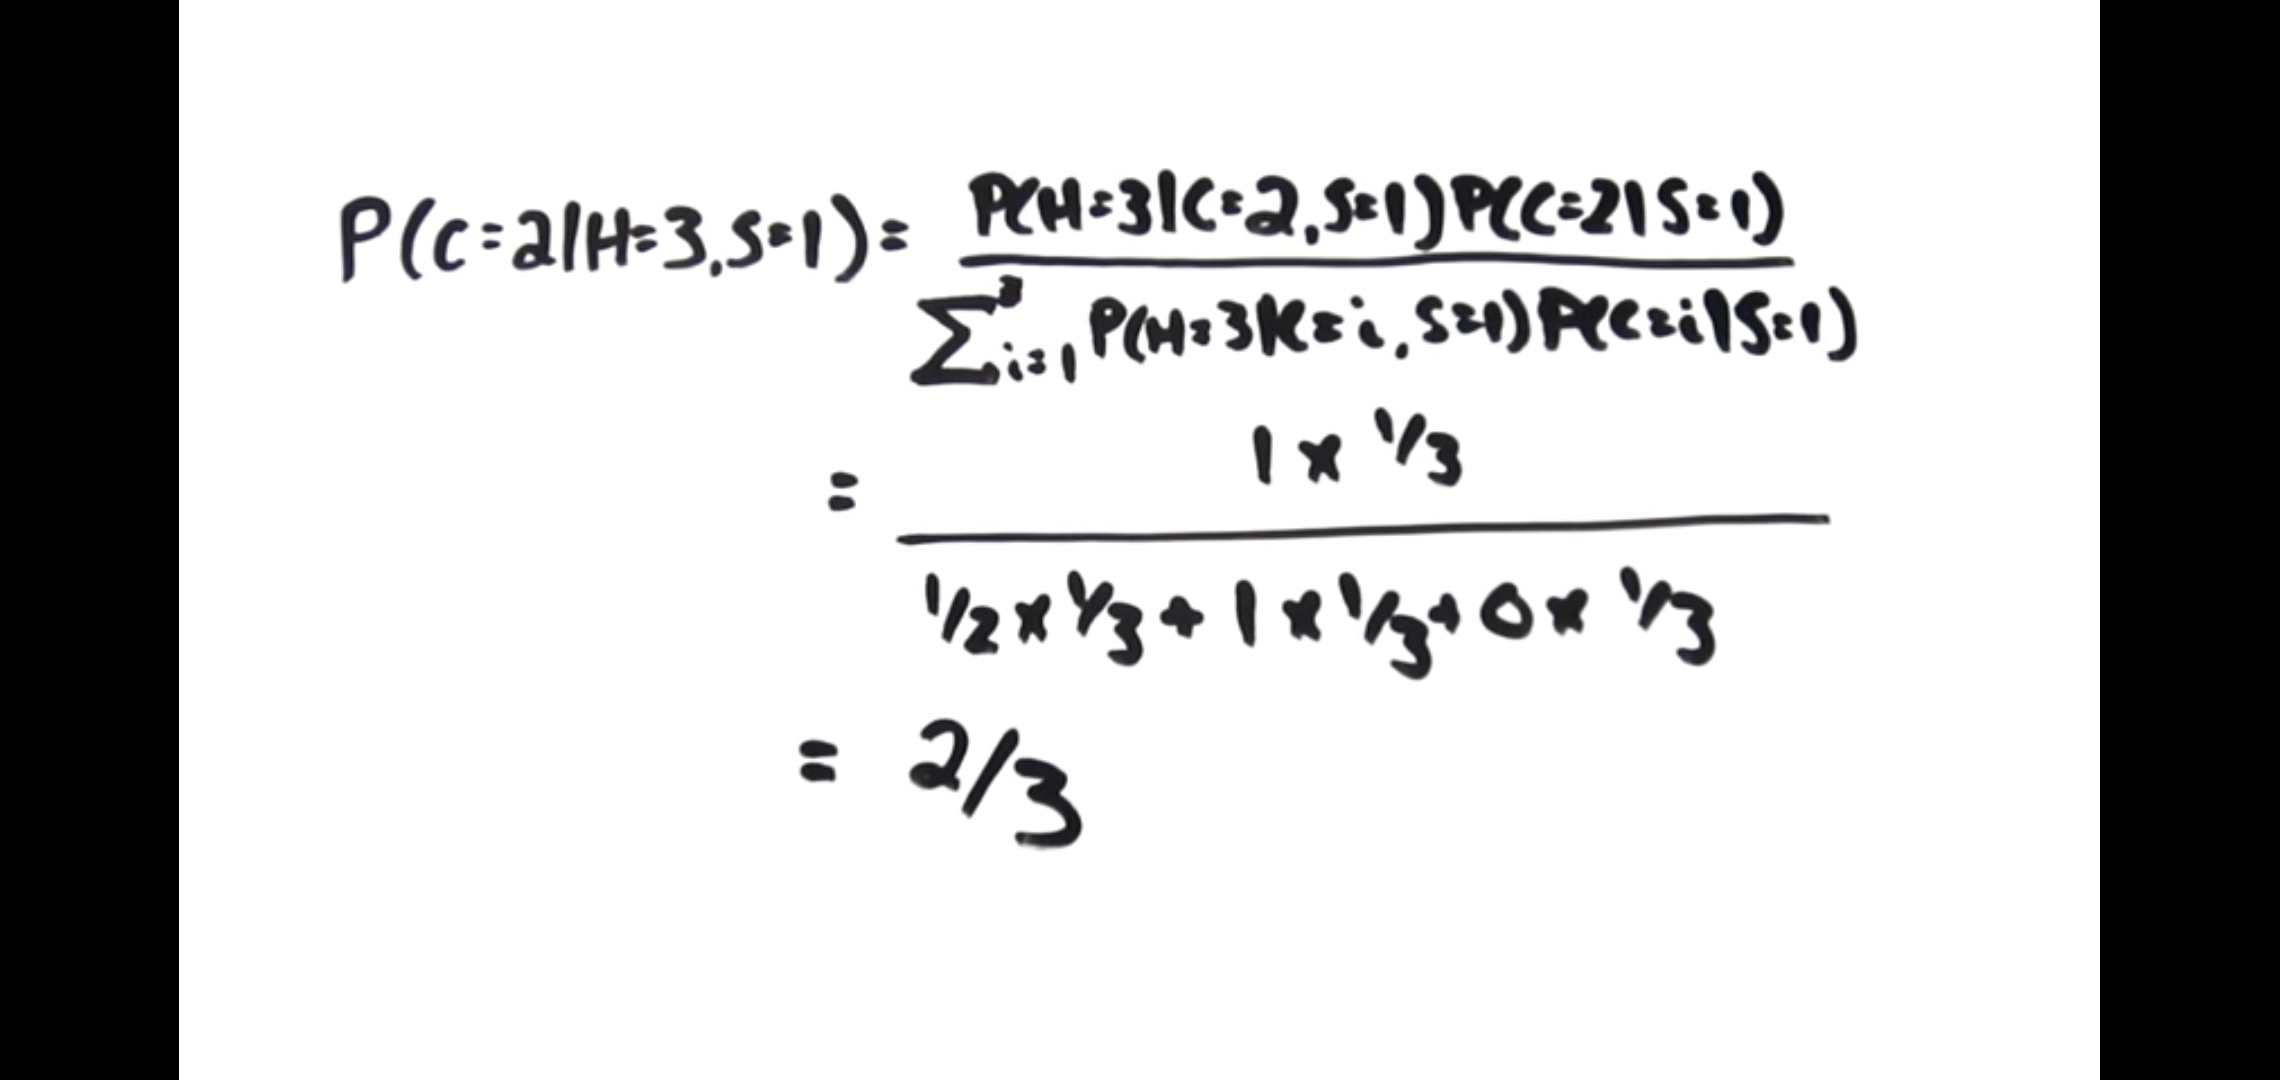 P(C=2|H=3,S=1)= P(H=3|C=2,S=1)P(C=2|S=1)
∑³ᵢ₌₁ P(H=3|C=i,S=1)P(C=i|S=1)
= 1 x 1/3
1/2 x 1/3 + 1 x 1/3 + 0 x 1/3
= 2/3